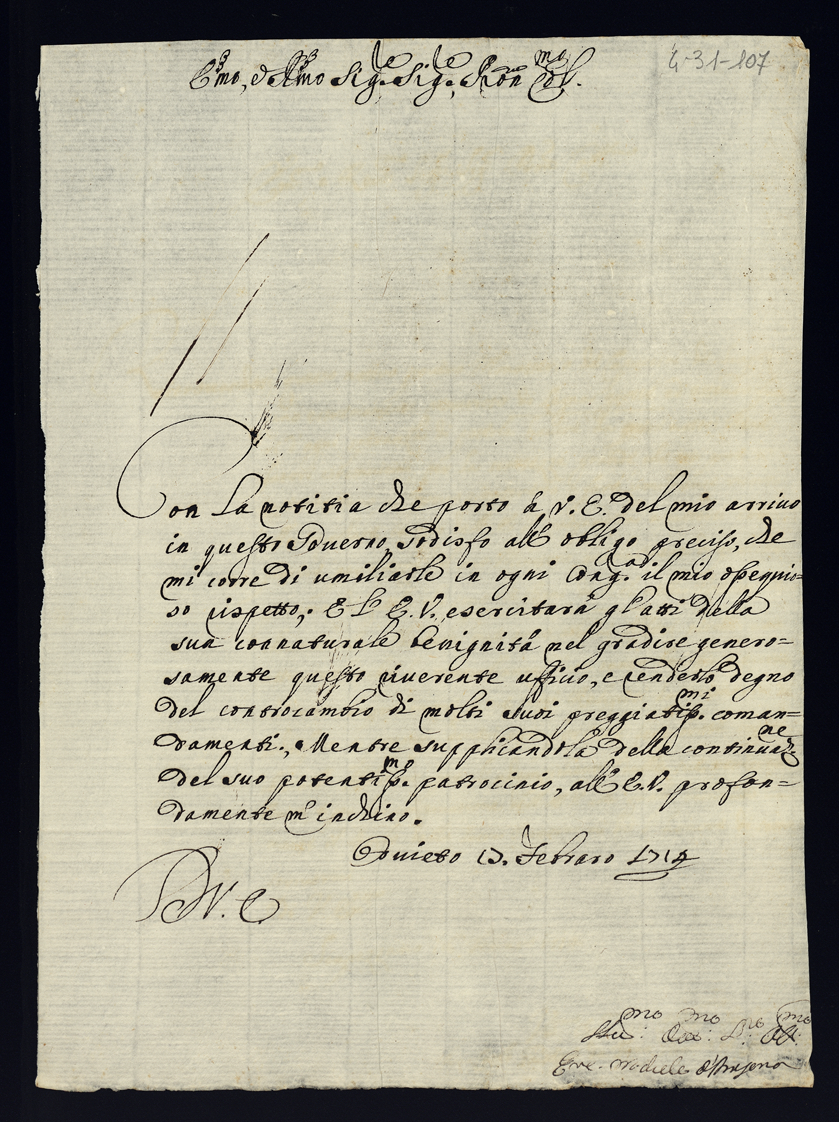 4-31-107
E.mo, e R.mo Sig.re Sig.re, Pron Col.mo
Con la notitia che porto à V. E. del mio arriuo
in questo Gouerno, sodisfo all' obligo preciso, che
mi corre di umiliarle in ogni Cong.a il mio ossequio=
so rispetto; E l' E. V. esercitarà gl' atti della
sua connaturale benignità nel gradire genero=
samente questo riuerente ufficio, e renderlo degno
del contracambio di molti suoi preggiatiss.mi coman=
damenti., Mentre supplicandola della continuaz.ne
del suo potentiss.mo patrocinio, all' E. V. profon=
damente m' inchino.
Oruieto 13. Febraro 1714
D V. E
mo Dev.mo